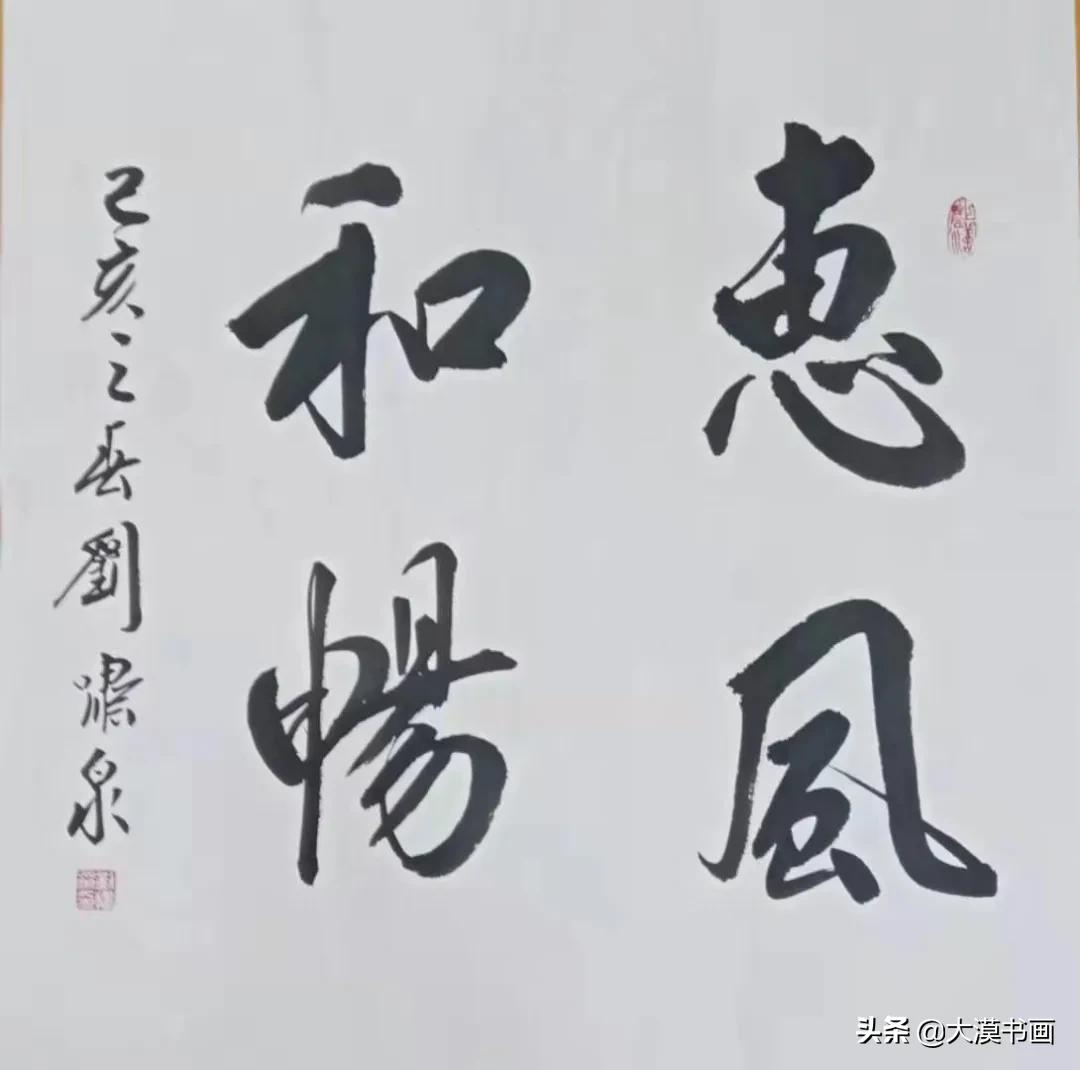 惠風
和暢
己亥之春劉啸泉
头条 @大漠书画